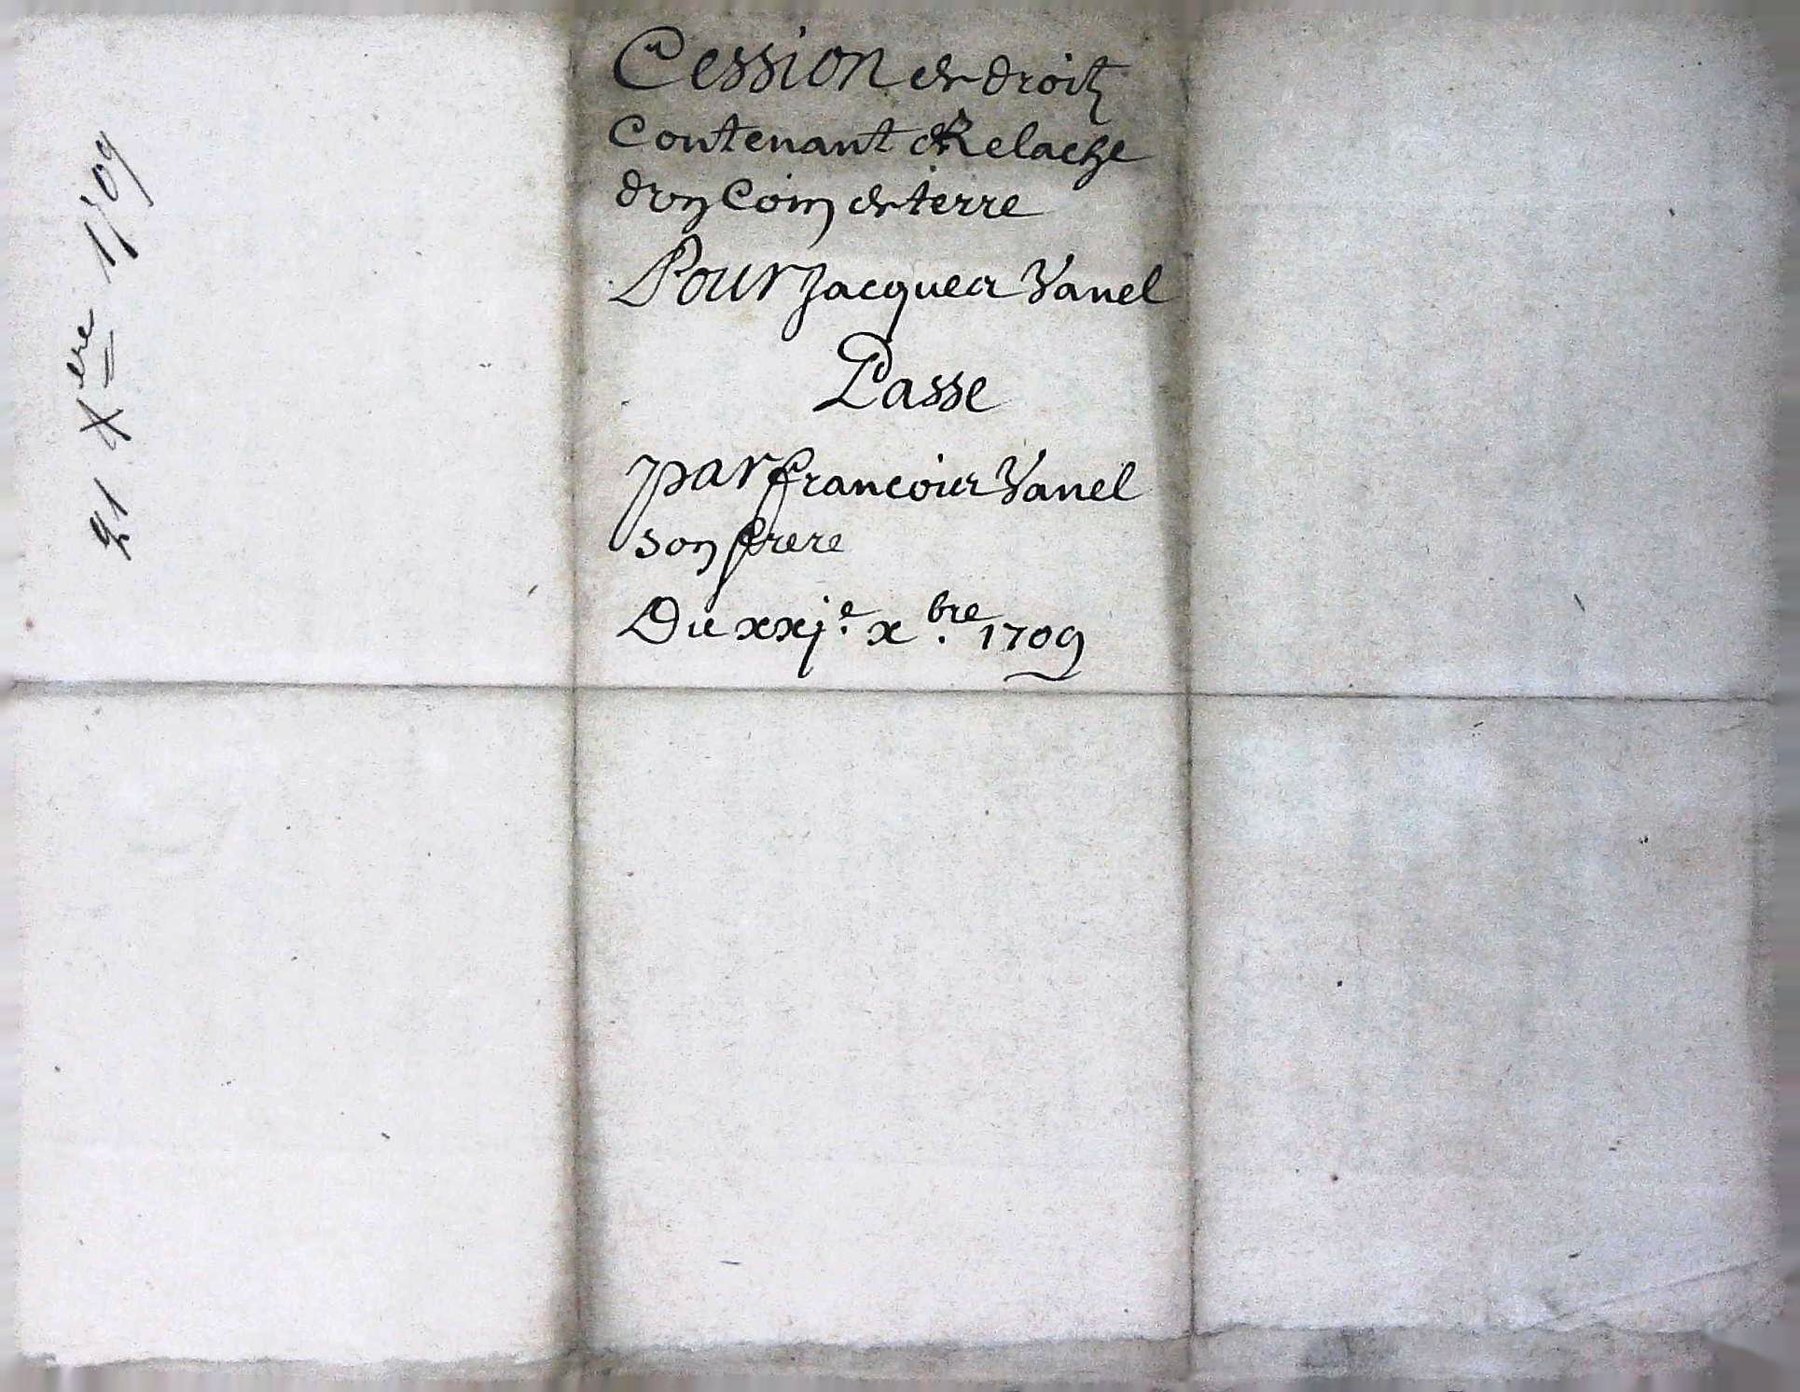 Cession de droitz
Contenant Relache
d'un Coin de terre
Pour Jacques Vanel
Passe
par francois Vanel
son frere
Du xxj.e x.bre 1709
21 Xere 1709